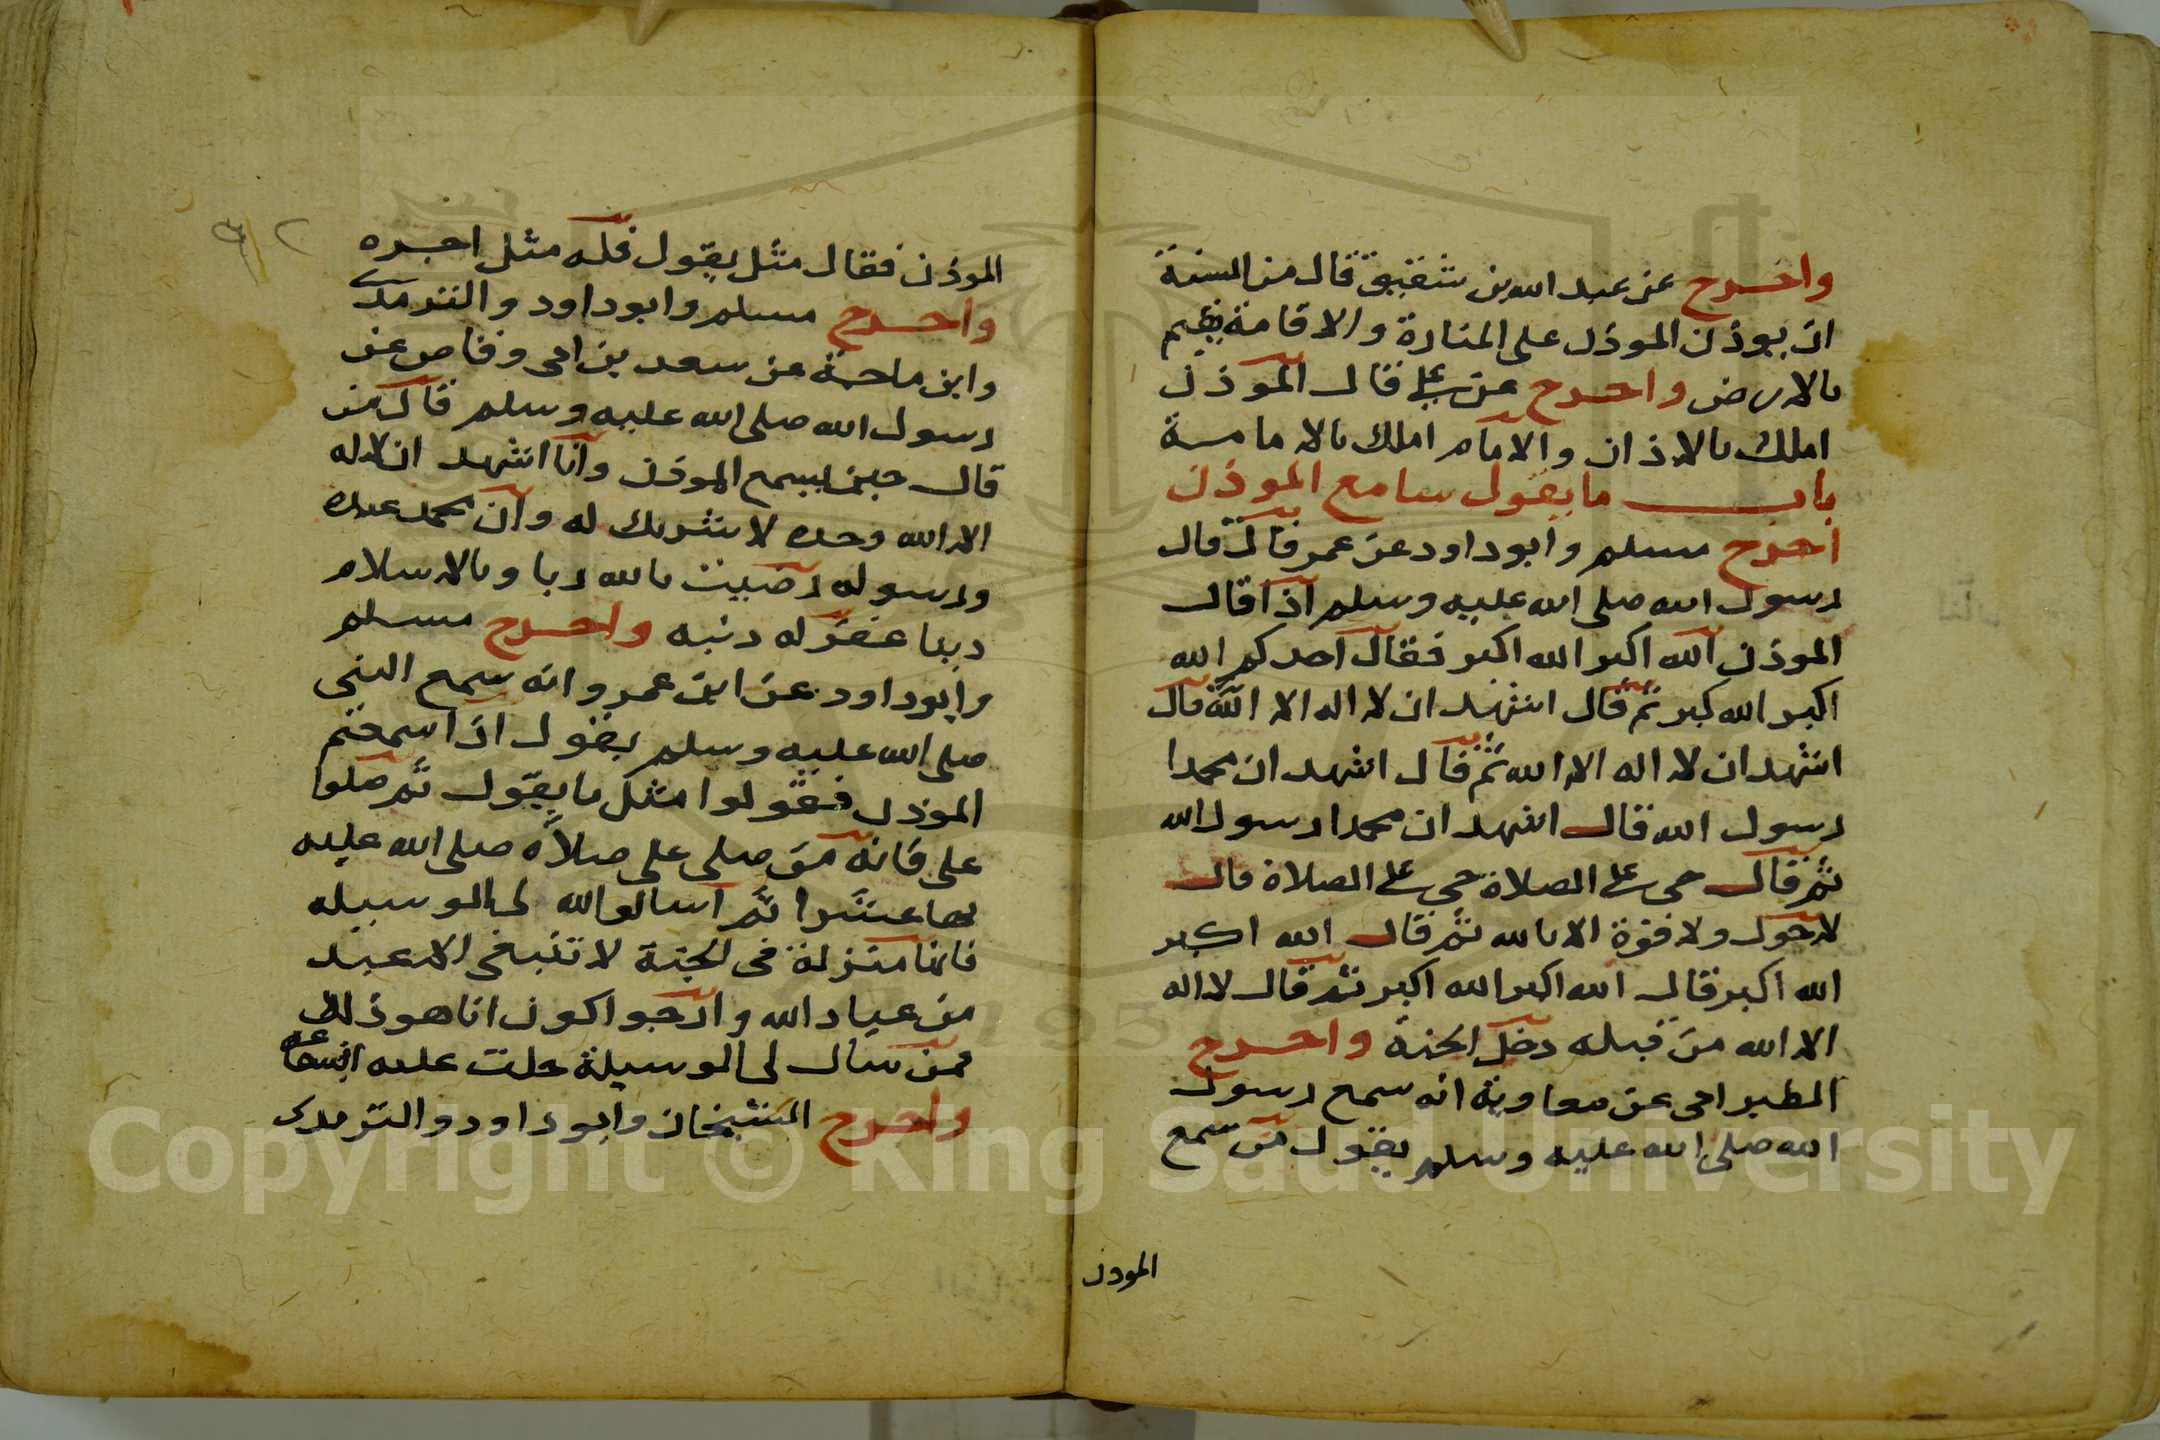 واخرج عن عبد الله بن شقيق قال من السنة
ان يوذن الموذن على المنارة والاقامة يقيم
بالارض واخرج عن علي قال الموذن
املك بالاذان والامام املك بالامامة
باب ما يقول سامع الموذن
اخرج مسلم وابو داود عن عمر قال قال
رسول الله صلى الله عليه وسلم اذا قال
الموذن الله اكبر الله اكبر فقال احدكم الله
اكبر الله كبر ثم قال اشهد ان لا اله الا الله قال
اشهد ان لا اله الا الله ثم قال اشهد ان محمدا
رسول الله قال اشهد ان محمدا رسول الله
ثم قال حي على الصلاة حي على الصلاة قال
لا حول ولا قوة الا بالله ثم قال الله اكبر
الله اكبر قال الله اكبر الله اكبر ثم قال لا اله
الا الله من قبله دخل الجنة واخرج
الطبراني عن معاوية انه سمع رسول
الله صلى الله عليه وسلم يقول من سمع
الموذن
الموذن فقال مثل يقول فله مثل اجره
واخرج مسلم وابو داود والترمذي
وابن ماجة عن سعد بن ابي وقاص عن
رسول الله صلى الله عليه وسلم قال من
قال حين يسمع الموذن وانا اشهد ان لا اله
الا الله وحده لا شريك له وان محمد عبده
ورسوله رضيت بالله ربا وبالاسلام
دينا غفر له ذنبه واخرج مسلم
وابو داود عن ابن عمرو انه سمع النبي
صلى الله عليه وسلم يقول اذا سمعتم
الموذن فقولوا مثل ما يقول ثم صلوا
علي فانه من صلى علي صلاة صلى الله عليه
بها عشرا ثم اسالوا الله لي الوسيله
فانها منزلة في الجنة لا تنبغي الا عبد
من عباد الله وارجوا اكون انا هو ذلك
فمن سال لي الوسيلة حلت عليه الشفاعه
واخرج الشيخان وابو داود والترمذي
Copyright © King Saud University
1957